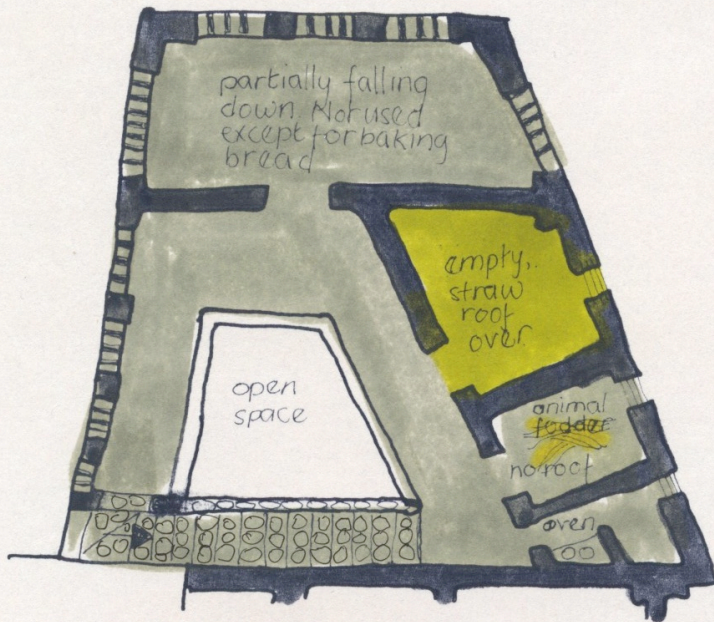 partially falling
down. Not used
except for baking
bread
empty,
straw
roof
over.
open
space
animal
fodder
no roof
oven